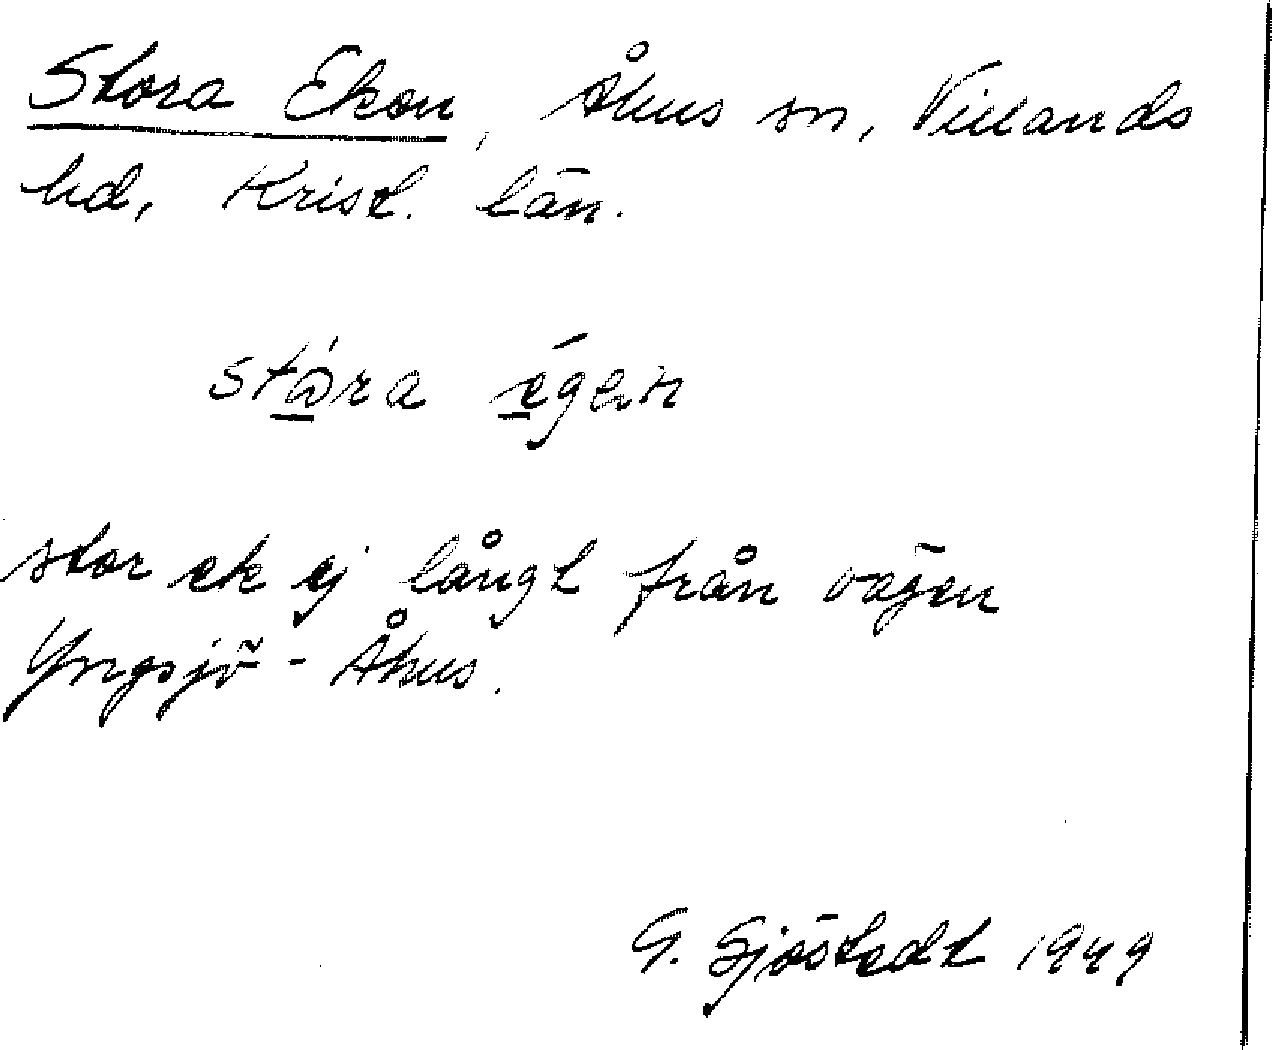 Stora Eken, Åhus sn, Villands
hd, Krist. län.
stώ̲ra é̲gen
stor ek ej långt från vägen
Yngsjö - Åhus.
G. Sjöstedt 1949